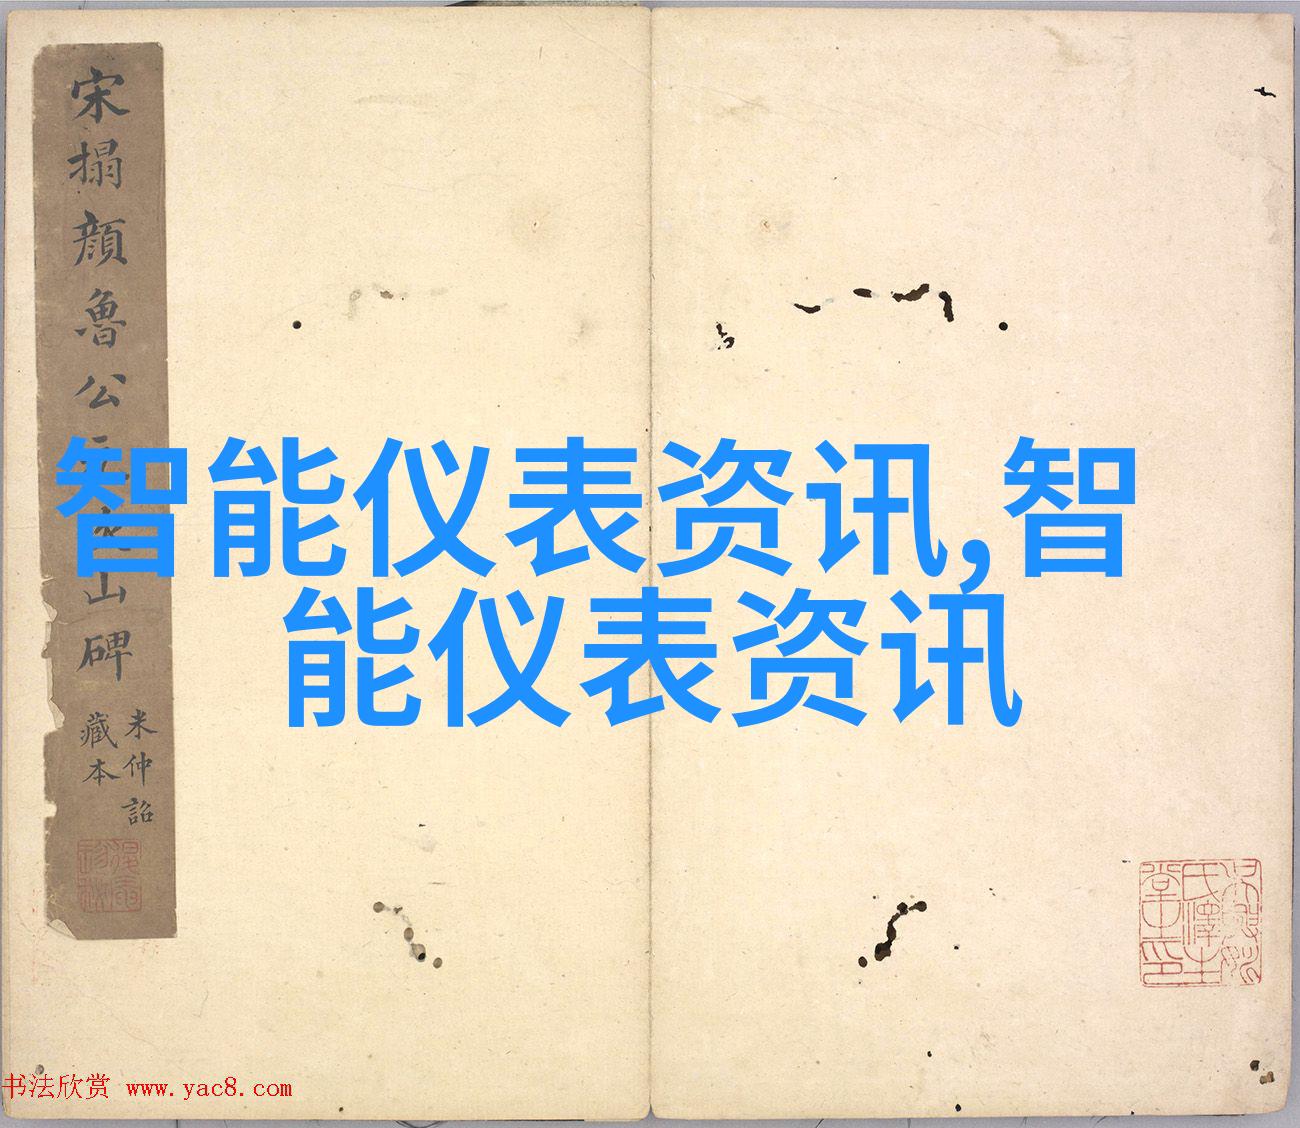 宋搨顏魯公
山碑
米仲詔
藏本
智能仪表资讯,智
能仪表资讯
书法欣赏 www.yac8.com